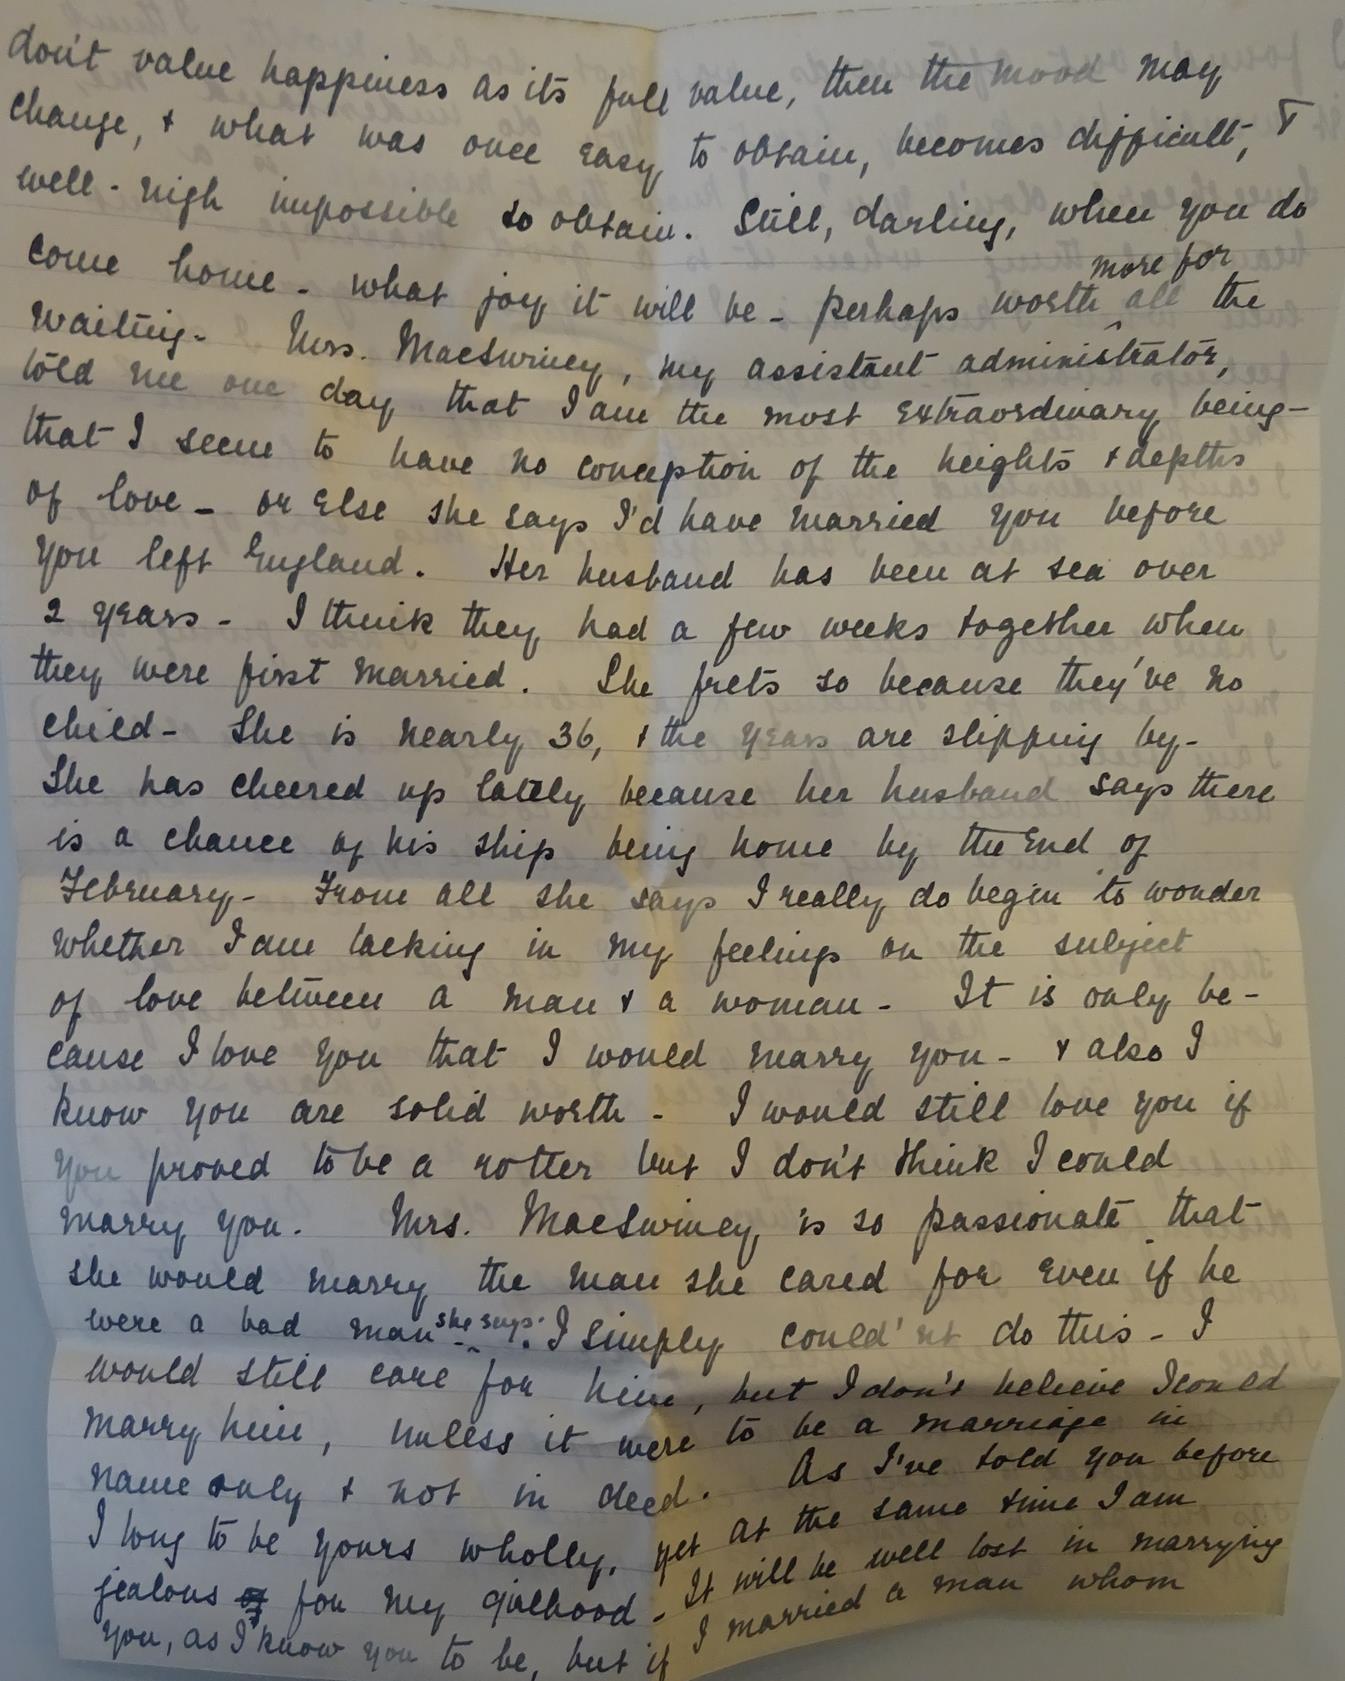 don't value happiness as its full value, then the mood may
change, & what was once easy to obtain, becomes difficult, &
well-nigh impossible to obtain. Still, darling, when you do
come home - what joy it will be - perhaps worth more for all the
waiting - Mrs. MacSwiney, my assistant administrator,
told me one day that I am the most extraordinary being -
that I seem to have no conception of the heights & depths
of love - or else she says I'd have married you before
you left England. Her husband has been at sea over
2 years - I think they had a few weeks together when
they were first married. She frets so because they've no
child - She is nearly 36, & the years are slipping by -
She has cheered up lately because her husband says there
is a chance of his ship being home by the end of
February - From all she says I really do begin to wonder
whether I am lacking in my feelings on the subject
of love between a man & a woman - It is only be-
cause I love you that I would marry you - & also I
know you are solid worth - I would still love you if
you proved to be a rotter but I don't think I could
marry you. Mrs. MacSwiney is so passionate that
she would marry the man she cared for even if he
were a bad man she says. I simply could'nt do this - I
would still care for him, but I don't believe I could
marry him, unless it were to be a marriage in
name only & not in deed. As I've told you before
I long to be yours wholly, yet at the same time I am
jealous of for my girlhood - It will be well lost in marrying
you, as I know you to be, but if I married a man whom